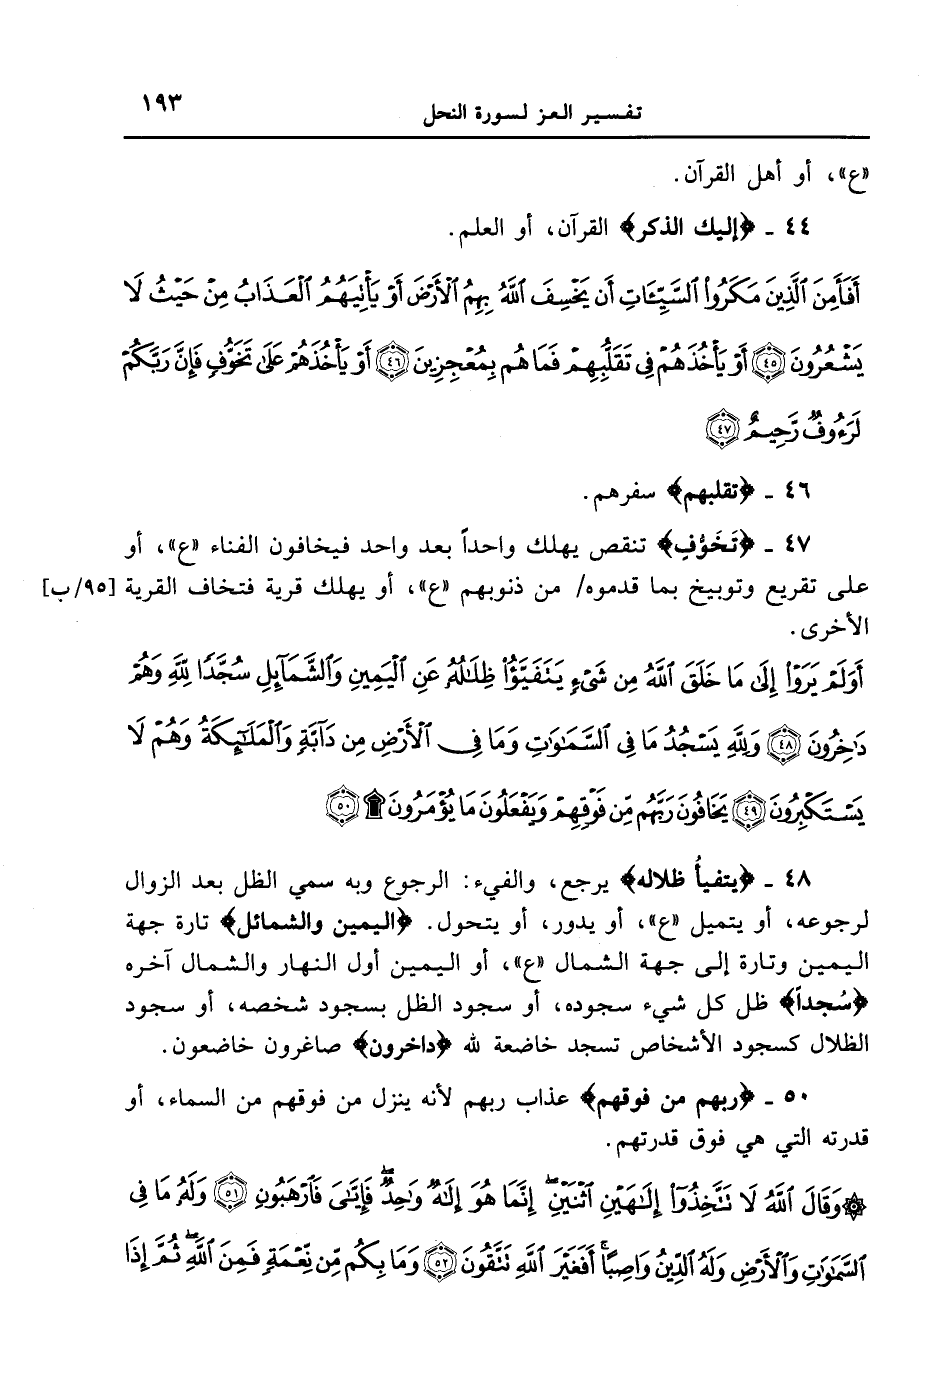 تفسير العز لسورة النحل ١٩٣
«ع»، أو أهل القرآن.
٤٤ ـ ﴿إليك الذكر﴾ القرآن، أو العلم.
أَفَأَمِنَ ٱلَّذِينَ مَكَرُوا۟ ٱلسَّيِّـَٔاتِ أَن يَخْسِفَ ٱللَّهُ بِهِمُ ٱلْأَرْضَ أَوْ يَأْتِيَهُمُ ٱلْعَذَابُ مِنْ حَيْثُ لَا
يَشْعُرُونَ ﴿٤٥﴾ أَوْ يَأْخُذَهُمْ فِى تَقَلُّبِهِمْ فَمَا هُم بِمُعْجِزِينَ ﴿٤٦﴾ أَوْ يَأْخُذَهُمْ عَلَىٰ تَخَوُّفٍ فَإِنَّ رَبَّكُمْ
لَرَءُوفٌ رَّحِيمٌ ﴿٤٧﴾
٤٦ ـ ﴿تقلبهم﴾ سفرهم.
٤٧ ـ ﴿تَخَوُّفٍ﴾ تنقص يهلك واحداً بعد واحد فيخافون الفناء «ع»، أو
على تقريع وتوبيخ بما قدموه/ من ذنوبهم «ع»، أو يهلك قرية فتخاف القرية [٩٥/ب]
الأخرى.
أَوَلَمْ يَرَوْا۟ إِلَىٰ مَا خَلَقَ ٱللَّهُ مِن شَىْءٍ يَتَفَيَّؤُا۟ ظِلَـٰلُهُۥ عَنِ ٱلْيَمِينِ وَٱلشَّمَآئِلِ سُجَّدًا لِّلَّهِ وَهُمْ
دَٰخِرُونَ ﴿٤٨﴾ وَلِلَّهِ يَسْجُدُ مَا فِى ٱلسَّمَـٰوَٰتِ وَمَا فِى ٱلْأَرْضِ مِن دَآبَّةٍ وَٱلْمَلَـٰٓئِكَةُ وَهُمْ لَا
يَسْتَكْبِرُونَ ﴿٤٩﴾ يَخَافُونَ رَبَّهُم مِّن فَوْقِهِمْ وَيَفْعَلُونَ مَا يُؤْمَرُونَ ۩ ﴿٥٠﴾
٤٨ ـ ﴿يتفيأُ ظلاله﴾ يرجع، والفيء: الرجوع وبه سمي الظل بعد الزوال
لرجوعه، أو يتميل «ع»، أو يدور، أو يتحول. ﴿اليمين والشمائل﴾ تارة جهة
اليمين وتارة إلى جهة الشمال «ع»، أو اليمين أول النهار والشمال آخره
﴿سُجداً﴾ ظل كل شيء سجوده، أو سجود الظل بسجود شخصه، أو سجود
الظلال كسجود الأشخاص تسجد خاضعة لله ﴿داخرون﴾ صاغرون خاضعون.
٥٠ ـ ﴿ربهم من فوقهم﴾ عذاب ربهم لأنه ينزل من فوقهم من السماء، أو
قدرته التي هي فوق قدرتهم.
۞ وَقَالَ ٱللَّهُ لَا تَتَّخِذُوٓا۟ إِلَـٰهَيْنِ ٱثْنَيْنِ ۖ إِنَّمَا هُوَ إِلَـٰهٌ وَٰحِدٌ ۖ فَإِيَّـٰىَ فَٱرْهَبُونِ ﴿٥١﴾ وَلَهُۥ مَا فِى
ٱلسَّمَـٰوَٰتِ وَٱلْأَرْضِ وَلَهُ ٱلدِّينُ وَاصِبًا ۚ أَفَغَيْرَ ٱللَّهِ تَتَّقُونَ ﴿٥٢﴾ وَمَا بِكُم مِّن نِّعْمَةٍ فَمِنَ ٱللَّهِ ۖ ثُمَّ إِذَا